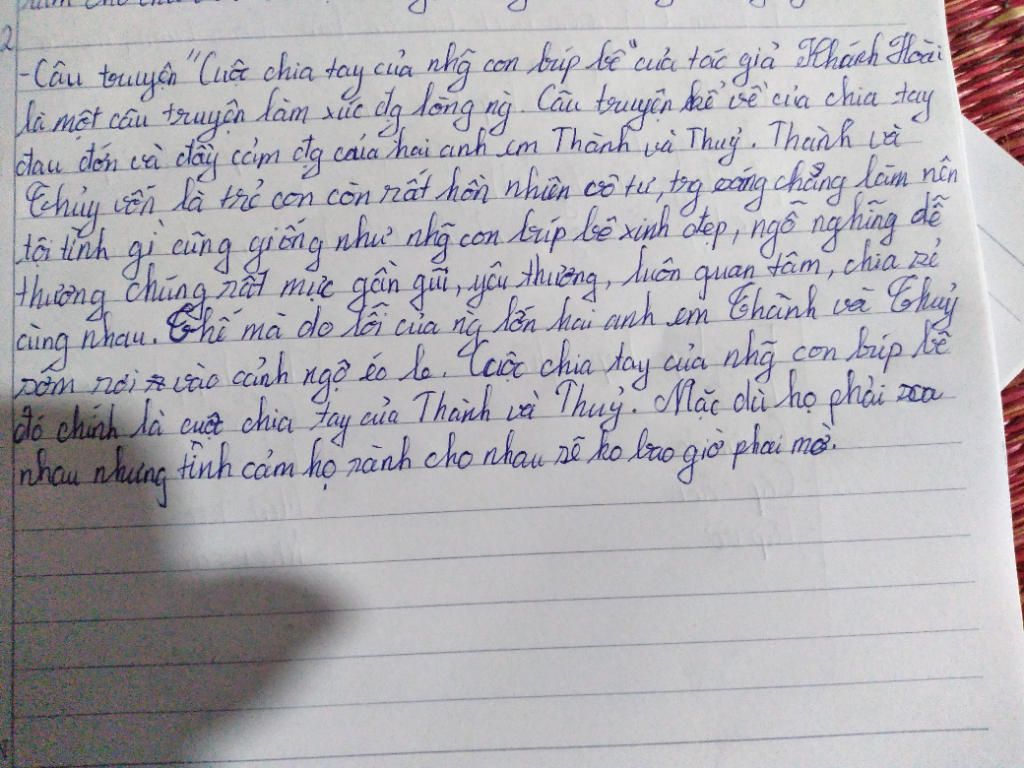 2
-Câu truyện "Cuộc chia tay của nhg̃ con búp bê" của tác giả Khánh Hoài
là một câu truyện làm xúc đg lòng ng̀. Câu truyện kể về của chia tay
đau đớn và đầy cảm đg của hai anh em Thành và Thuỷ. Thành và
Thủy vốn là trẻ con còn rất hồn nhiên vô tư, trg sáng chẳng làm nên
tội tình gì cũng giống như nhg̃ con búp bê xinh đẹp, ngỗ nghĩng dễ
thương chúng rất mực gần gũi, yêu thương, luôn quan tâm, chia sẻ
cùng nhau. Thế mà do lỗi của ng̀ lớn hai anh em Thành và Thuỷ
sớm rơi vào cảnh ngộ éo le. Cuộc chia tay của nhg̃ con búp bê
đó chính là cuộc chia tay của Thành và Thuỷ. Mặc dù họ phải xa
nhau nhưng tình cảm họ rành cho nhau sẽ ko bao giờ phai mờ.